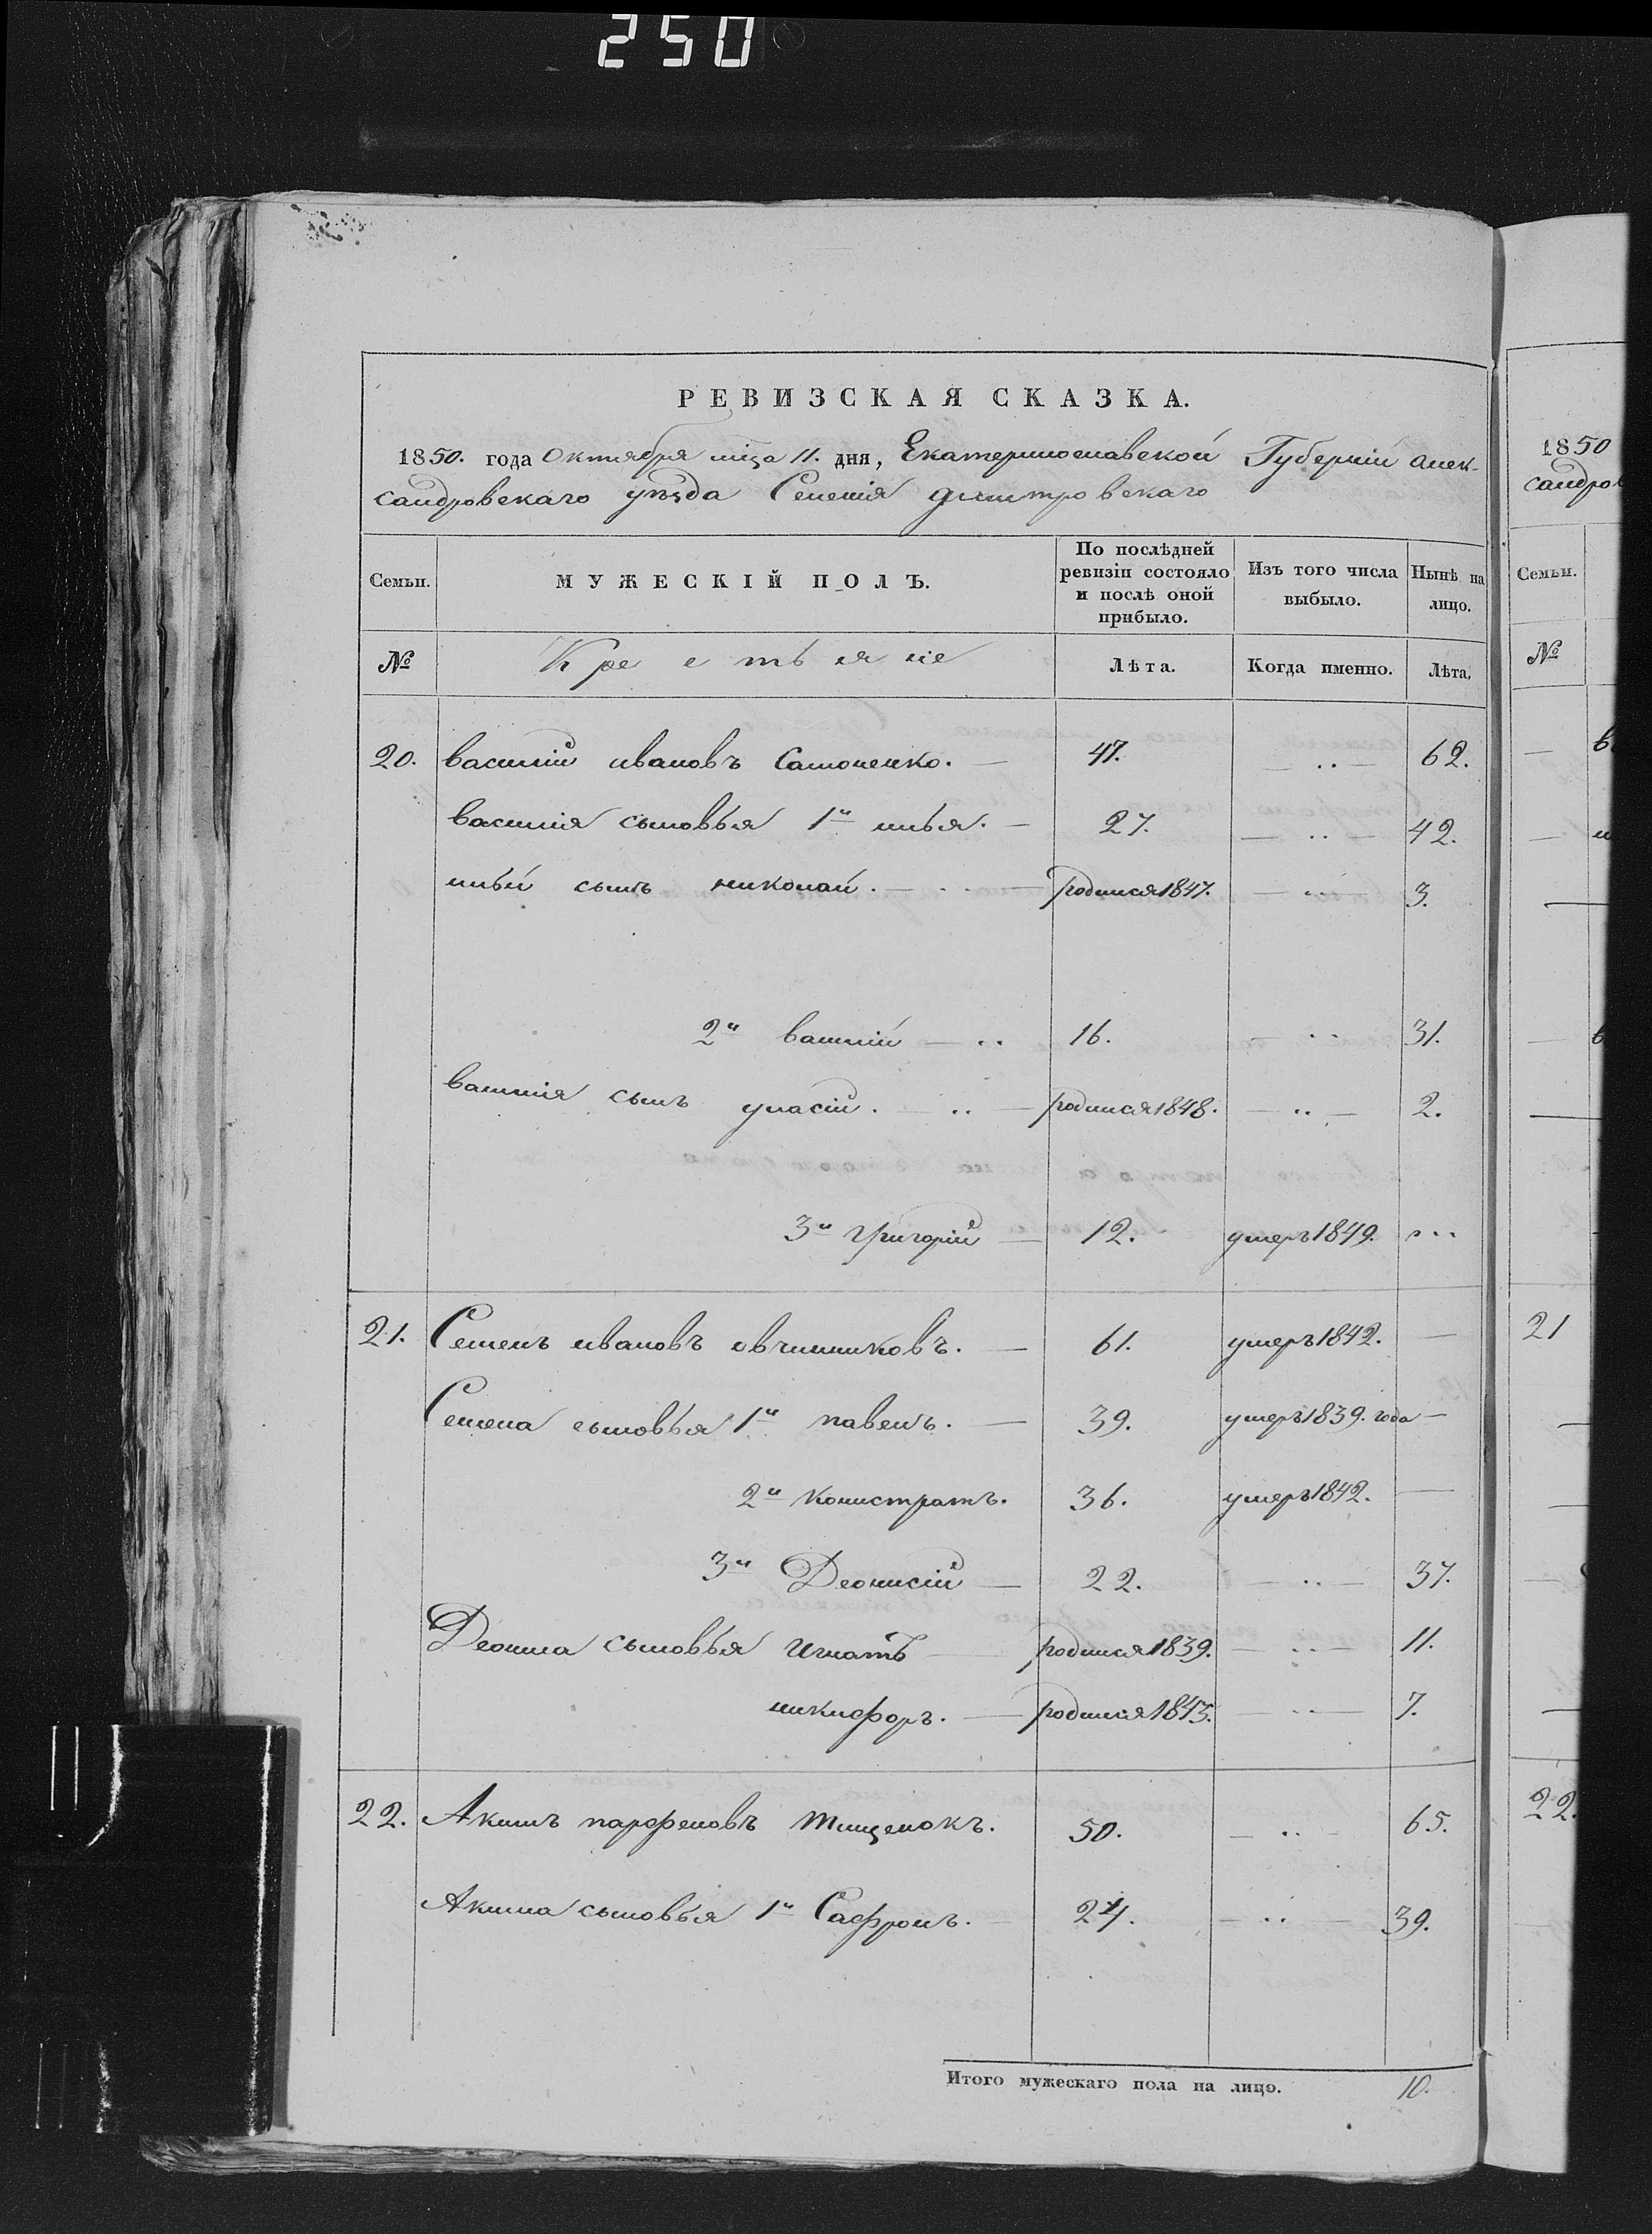 250
РЕВИЗСКАЯ СКАЗКА.
1850. года Октября мца 11. дня, Екатеринославской Губерніи алек-
сандровскаго уѣзда Селенія дмитровскаго
Семьи. МУЖЕСКІЙ ПОЛЪ. По послѣдней ревизіи состояло и послѣ оной прибыло. Изъ того числа выбыло. Нынѣ на лицо.
№ Крестьяне Лѣта. Когда именно. Лѣта.
20. василій ивановъ Самоненко. — 47. — .. — 62.
василія сыновья 1й илья. — 27. — .. — 42.
ильи сынъ николай. — .. — родился 1847. — .. — 3.
2й василій — .. 16. — .. 31.
василія сынъ власій. — .. — родился 1848. — .. — 2.
3й григорій — 12. умеръ 1849. ...
21. Семенъ ивановъ овчинниковъ. — 61. умеръ 1842. —
Семена сыновья 1й павелъ. — 39. умеръ 1839. года —
2й конистратъ. 36. умеръ 1842. —
3й Деонисій — 22. — .. — 37.
Деониса сыновья Игнатъ — родился 1839. — .. — 11.
никифоръ. — родился 1843. — .. — 7.
22. Акимъ парфеновъ тищенокъ. 50. — .. — 65.
Акима сыновья 1й Сафронъ. — 24. — .. — 39.
Итого мужескаго пола на лицо. 10.
1850
сандров
Семьи.
№
21
22.